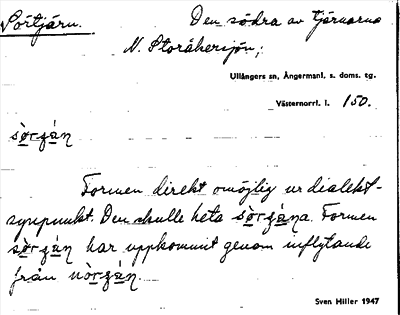 Sörtjärn. Den södra av tjärnarna
N. Storåkersjön;
Ullångers sn, Ångermanl. s. doms. tg.
Västernorrl. l. 150.
sò̱rzán
Formen direkt omöjlig ur dialekt-
synpunkt. Den skulle heta sò̱rzána. Formen
sò̱rzán har uppkommit genom inflytande
från nò̱rzán.
Sven Hiller 1947